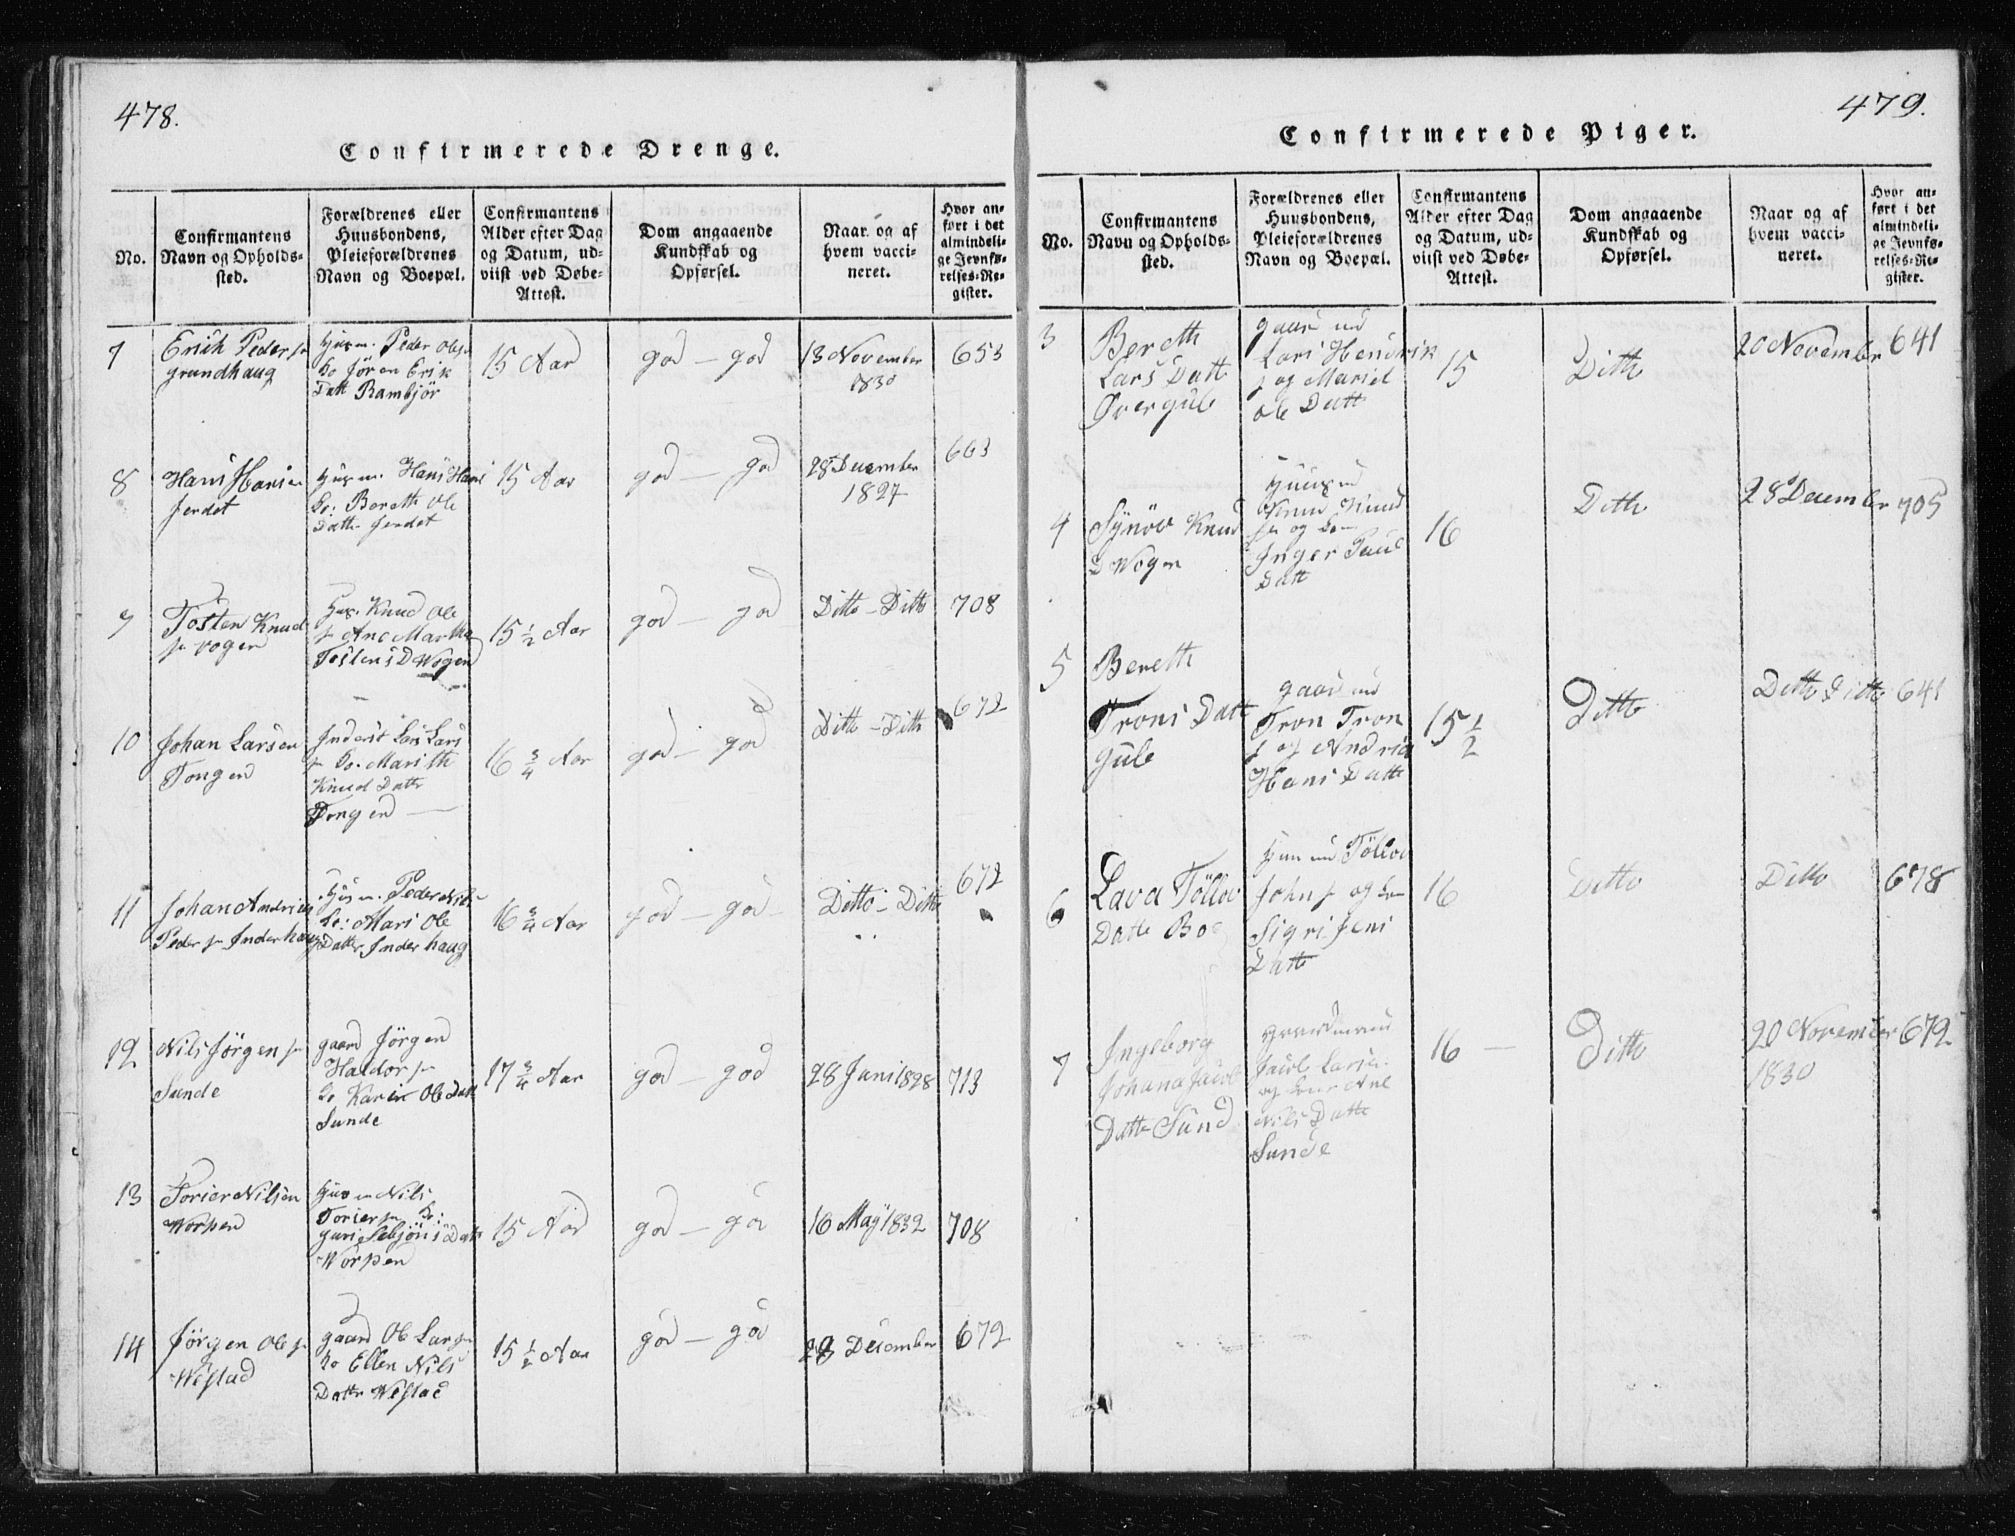 478.
Confirmerede Drenge.
No.
Confirmantens
Navn og Opholds-
sted.
Forældrenes eller
Huusbondens,
Pleieforældrenes
Navn og Boepæl.
Confirmantens
Alder efter Dag
og Datum, ud-
viist ved Døbe-
Attest.
Dom angaaende
Kundskab og
Opførsel.
Naar og af
hvem vacci-
neret.
Hvor an-
ført i det
almindeli-
ge Jevnfø-
relses-Re-
gister.
7
Erich Peder sn
grundhaug
Husm. Peder Ols
Ko Jøren Erik
Datt Rambjör
15 Aar
god - god
13 November
1830
653
8
Hans Hansen
ferdet
Husm. Hans Hans
Ko: Bereth Ole
Datter ferdet
15 Aar
god - god
28 December
1827
663
9
Tosten Knud
sn vogen
Hus. Knud Ole
sn Ane Martha
Tostens D Wogen
15 1/2 Aar
god - god
Ditto - Ditto
708
10
Johan Larsen
Tongen
Inderst Lars Lars
sn Ko. Marith
Knud Datter
Tongen
16 3/4 Aar
god - god
Ditto - Ditto
672
11
Johan Andreas
Peder sn Inderhaug
Husm. Peder Nils
Ko: Mari Ole
Datter Inderhaug
16 3/4 Aar
god - god
Ditto - Ditto
672
12
Nils Jörgen sn
Sunde
gaard Jörgen
Haldor sn
Ko Karen Ole Datt
Sunde
17 3/4 Aar
god - god
28 Juni 1828
713
13
Torier Nilsen
Worpen
Husm Nils
Torier sn Ko:
guri Sebjöns Datt
Worpen
15 Aar
god - god
16 Maÿ 1832
708
14
Jörgen Ole sn
Westad
gaard Ole Lars sn
Ko Ellen Nils
Datter Westad
15 1/2 Aar
god - god
28 December
672
479.
Confirmerede Piger.
No.
Confirmantens
Navn og Opholds-
sted.
Forældrenes eller
Huusbondens,
Pleieforældrenes
Navn og Boepæl.
Confirmantens
Alder efter Dag
og Datum, ud-
viist ved Døbe-
Attest.
Dom angaaende
Kundskab og
Opførsel.
Naar og af
hvem vacci-
neret.
Hvor an-
ført i det
almindeli-
ge Jevnfø-
relses-Re-
gister.
3
Bereth
Lars Datt
Øvergule
gaard md
Lars Hendrik
s og Mariet
Ole Datt
15
Ditto
20 November
641
4
Synöv Knud
D Wogen
Huus md
Knud Knud
sn og Kone
Inger Paul
Datt
16
Ditto
28 December
705
5
Bereth
Trons Datt
gule
gaard md
Tron Tron
s og Andrea
Hans Datt
15 1/2
Ditto
Ditto Ditto
641
6
Lava Töllov
Datte Boe
Huus md Töllov
John sn og Kone
Sigri Jens
Datt
16
Ditto
Ditto
678
7
Ingeborg
Johana Jacob
Datte Sund
gaardmand
Jacob Larsen
og Kone Ane
Nils Datte
Sunde
16
Ditto
20 November
1830
672